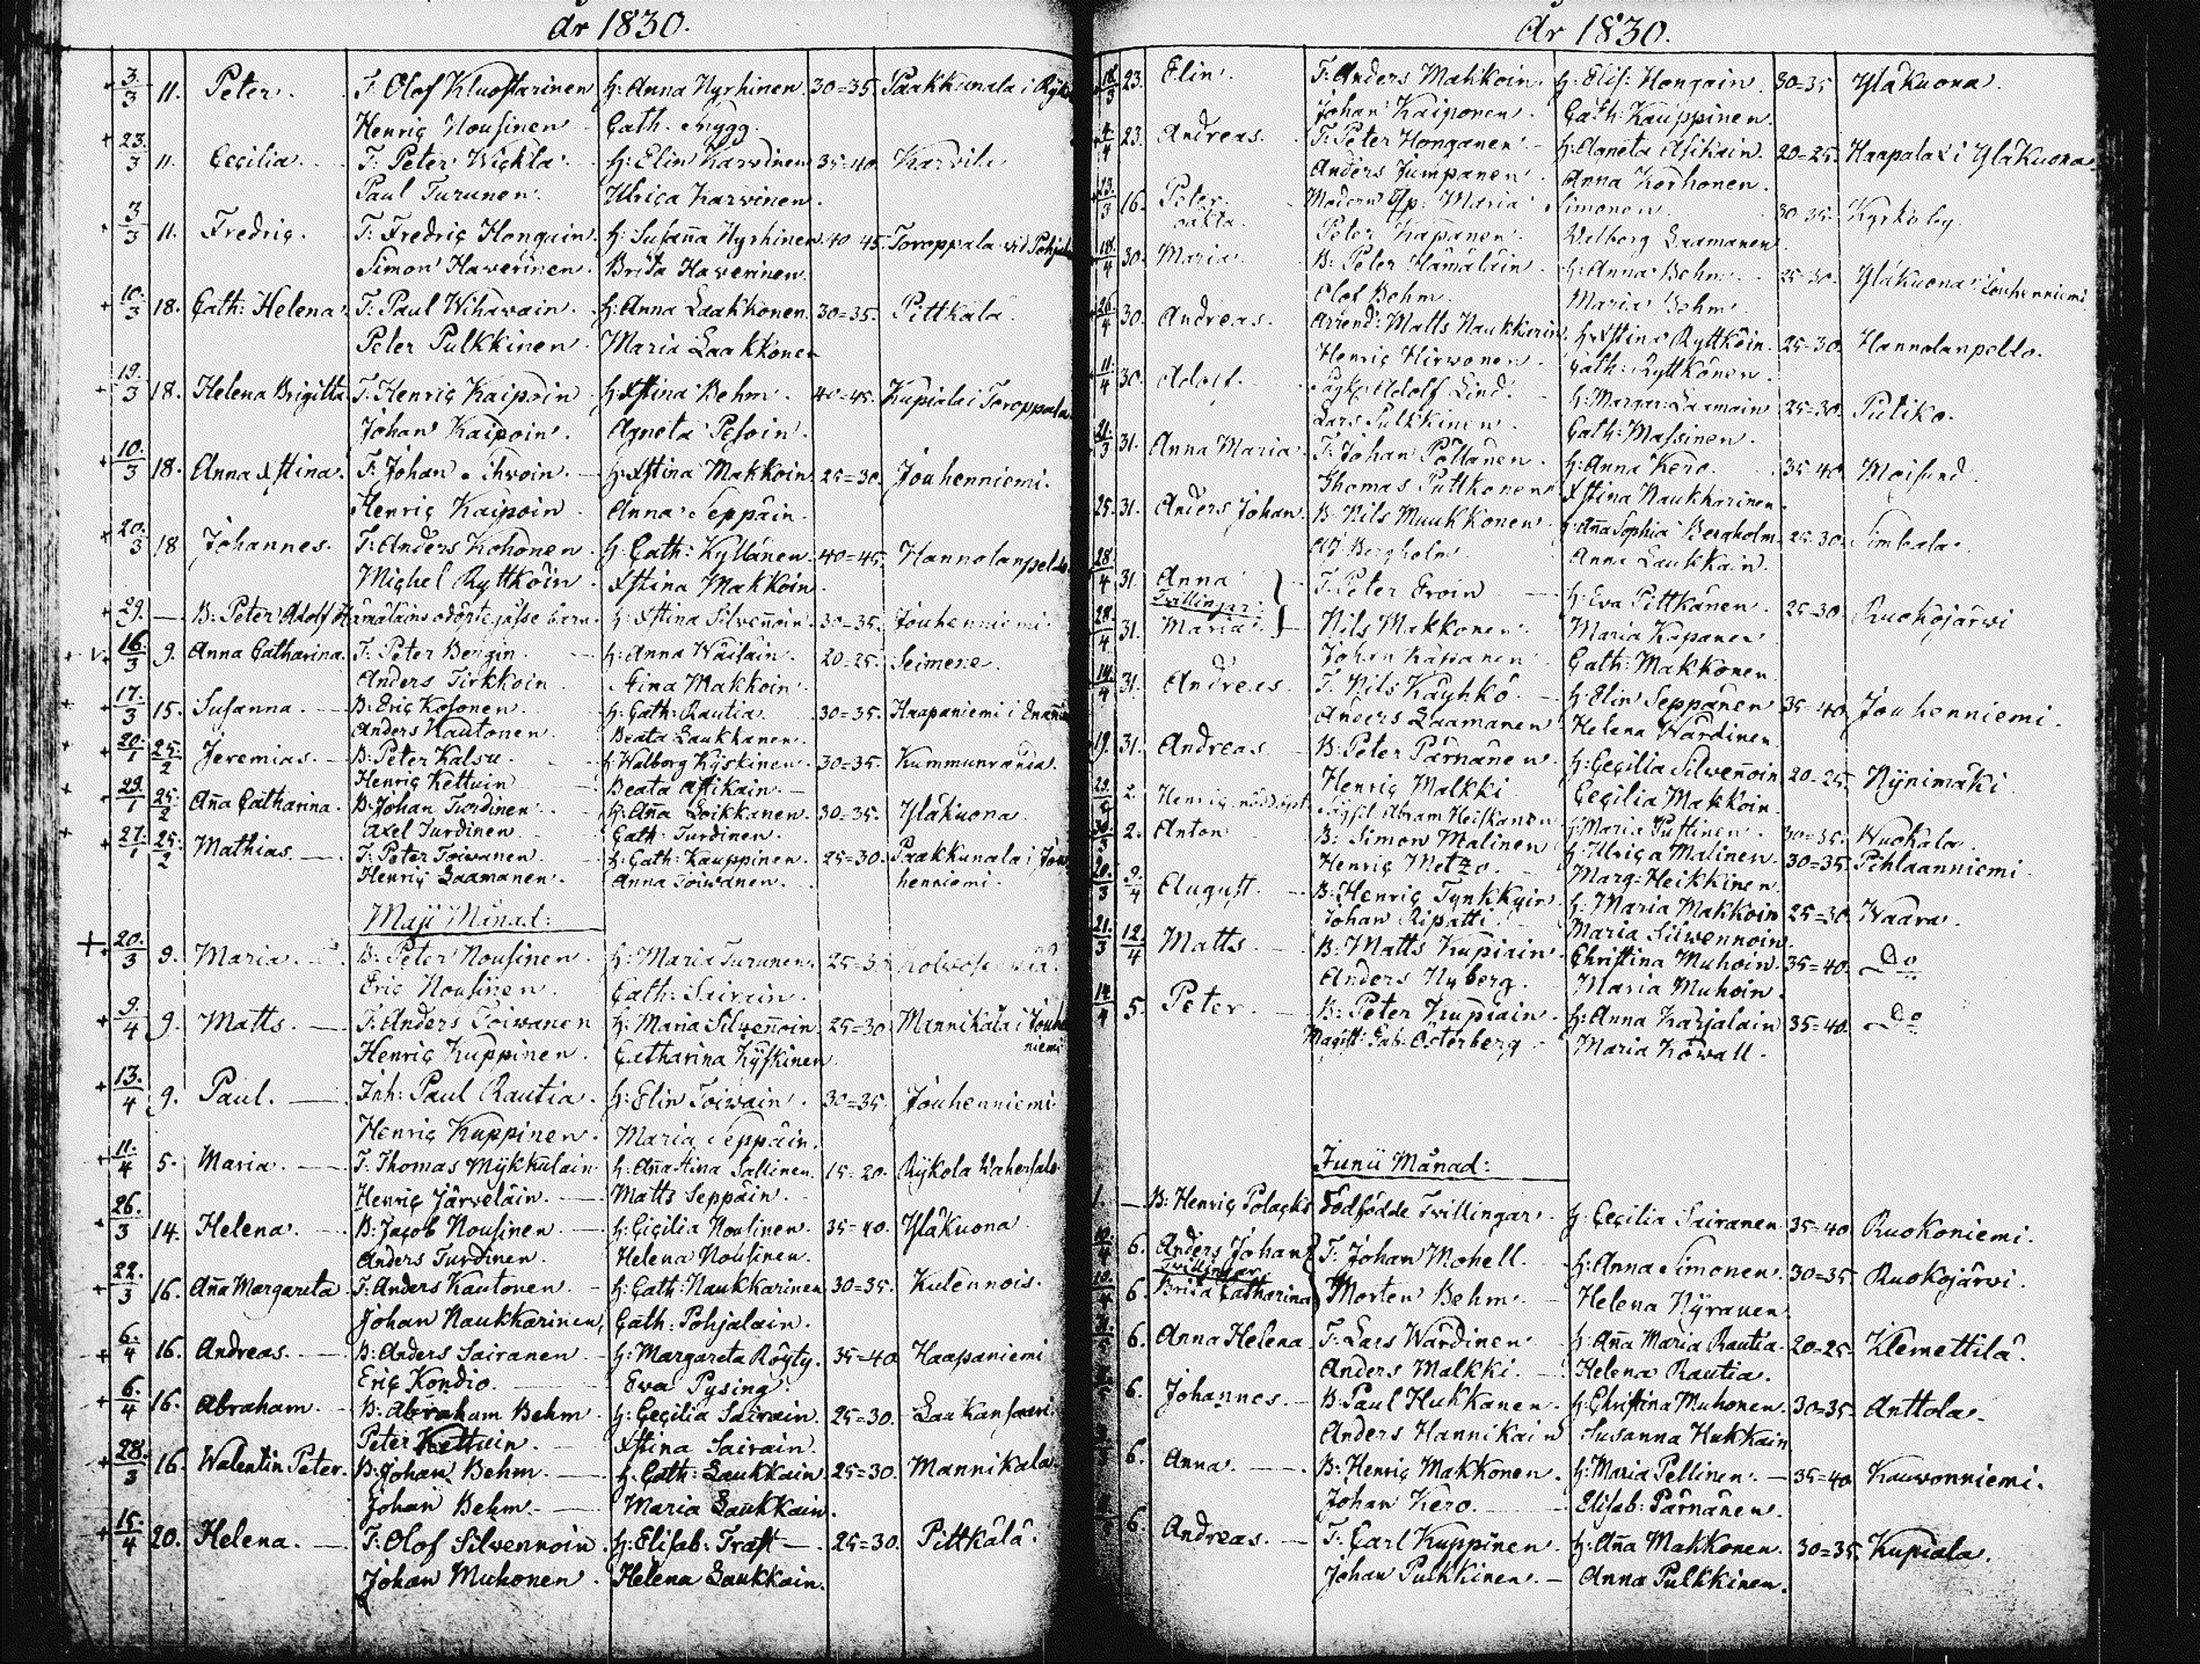 år 1830.
3./3 11. Peter. T: Olof Kluostarinen h: Anna Nyrhinen. 30=35. Paakkunala i
Henriç Nousinen Cath. Snygg.
23./3 11. Ceçilia. T: Peter Wickla h: Elin Karvinen 35=40. Karvila
Paul Turunen. Ulriça Karvinen.
3/3 11. Fredriç. T: Fredriç Hongain. h: Susaña Nyrhinen. 40 45 Toroppala vid
Simon Haverinen. Brita Haverinen.
10./3 18. Cath: Helena. T: Paul Wihavain. h: Anna Laakkonen. 30=35. Pittkälä.
Peter Pulkkinen Maria Laakkonen
19./3 18. Helena Brigitta. T: Henriç Kaipoin. h: Xstina Behm. 40=45. Kupiala i Toroppala
Johan Kaipoin. Agneta Pesoin.
10./3 18. Anna Xstina. T: Johan Ihvoin. h: Xstina Makkoin 25=30. Jouhenniemi.
Henriç Kaipoin. Anna Seppäin.
20./3 18 Johannes. T: Anders Kohonen. h: Cath: Kyllänen. 40=45. Hannolanpeldo
Michel Ryttköin Xstina Makkoin.
29. — B: Peter Adolf Hämäläins odöpte gosse barn. h: Xstina Silveñoin. 30=35. Jouhenniemi.
16./3 9. Anna Catharina. T: Peter Bergin. h: Anna Waisain. 20=25. Seimene.
Anders Tirkkoin Stina Makkoin.
17./3 15. Susanna. B: Eriç Kosonen. h: Cath: Rautia. 30=35. Haapaniemi i
Anders Kautonen. Beata Laukkanen.
20./1 25./2 Jeremias. B: Peter Kalsu. h: Walborg Kyskinen. 30=35. Kummunranda.
Henriç Kettuin Beata Asikain.
29./1 25./2 Aña Catharina. B: Johan Turdinen. h: Aña Loikkanen. 30=35. Yläkuona
Axel Turdinen Cath: Turdinen.
27./1 25./2 Mathias. T: Peter Toivanen. h: Cath: Kauppinen. 25=30. Paakkunala i Jou-
Henriç Laamanen. Anna Toivanen. henniemi.
Maji Månad:
20./3 9. Maria. B: Peter Nousinen. h: Maria Turunen.
Eriç Nousinen. Cath: Sairain.
9./4 9. Matts. T: Anders Toivanen h: Maria Silveñoin. 25=30 Mannikala i Jouhe
Henriç Kuppinen. Catharina Kyskinen. niemi
13./4 9. Paul. Inh: Paul Rautia. h: Elin Toivain. 30=35. Jouhenniemi
Henriç Kuppinen. Maria Seppäin.
11./4 5. Maria. T: Thomas Mykkäläin h: Aña Stina Sallinen. 15=20. Rykola Wahersalo
Henriç Järveläin. Matts Seppäin.
26./3 14. Helena. B: Jaçob Nousinen h: Ciçilia Nousinen. 35=40. Yläkuona
Anders Turdinen. Helena Nousinen.
22./3 16. Aña Margareta. T: Anders Kautonen. h: Cath: Naukkarinen 30=35. Kulennois.
Johan Naukkarinen, Cath: Pohjalain.
6./4 16. Andreas. B: Anders Sairanen. h: Margareta Röyty. 35=40 Haapaniemi
Eriç Kondio. Eva Pysing.
6./4 16. Abraham. B: Abraham Behm. h: Ceçilia Sairain. 25=30. Laukansaari.
Peter Kettuin. Xstina Sairain.
28./3 16. Walentin Peter. B: Johan Behm. h: Cath: Laukkain 25=30. Mannikala
Johan Behm. Maria Laukkain.
15./4 20. Helena. T: Olof Silvennoin. h: Elisab: Trast 25=30. Pittkälä.
Johan Muhonen. Helena Laukkain.
År 1830.
18./3 23. Elin. T: Anders Makkoin. h: Elis: Hongain. 30=35 Yläkuona.
Johan Kaiponen. Cath: Kauppinen.
4./4 23. Andreas. T: Peter Honganen. h: Agneta Asikain. 20=25. Haapala i Yläkuona.
Anders Jumpanen. Anna Korhonen.
23./3 16. Peter oäkta. Modern Maria Simonen. 30 35. Kyrkoby.
Peter Kapanen. Walborg Laamanen.
18./4 30. Maria. B: Peter Hämäläin. h: Anna Behm. 25=30. Yläkuona Jouhenniemi
Olof Behm. Maria Behm.
26./4 30. Andreas. Arrend: Matts Naukkarin. h: Xstina Ryttköin. 25=30. Hannolanpeldo.
Henriç Hirvonen. Cath: Ryttkönen.
11./4 30. Adolf. Adolf Lind. h: Margar: Laamain 25=30. Putiko.
Lars Pulkkinen. Cath: Massinen.
21./3 31. Anna Maria. T: Johan Pöllänen. h: Anna Kero. 35=40 Moisund.
Thomas Puttkonen Xstina Naukkarinen.
25. 31. Anders Johan. B: Nils Muukkonen. h: Aña Sophia Bergholm. 25=30. Simbala.
Bergholm. Anna Laukkain.
28./4 31. Anna T: Peter Eroin h: Eva Pittkänen. 25=30 Ruokojärvi
Tvillingar.
28./4 31. Maria. Nils Makkonen. Maria Kapanen
Johan Kapanen Cath: Makkonen.
14./4 31. Andreas. T: Nils Käyhkö. h: Elin Seppänen 35=40. Jouhenniemi.
Anders Laamanen Helena Wärdinen.
19. 31. Andreas. B: Peter Pärnänen. h: Ceçilia Silveñoin 20=25. Nynimäki
Henriç Malkki. Ceçilia Makkoin.
2. Henriç nöddöpt. Abram Heiskanen h: Maria Pustinen. 30=35. Wuokala.
30./3 2. Anton B: Simon Malinen h: Ulriça Malinen. 30=35. Pihlaanniemi.
Henriç Metzo. Marg: Heikkinen.
20./3 9./4 August. B: Henriç Tynkkyin. h: Maria Makkoin 25=30 Waara.
Johan Ripatti. Maria Silvennoin.
21./3 12./4 Matts. B: Matts Kupiain. Christina Muhoin. 35=40. Do
Anders Nyberg. Maria Muhoin.
14./4 5. Peter. B: Peter Kupiain. h: Anna Karjalain 35=40. Do
Magist: Gab: Österberg Maria Kövall.
Junii Månad:
1. — B: Henriç Polaçks Dödfödde Tvillingar. h: Ceçilia Sairanen 35=40 Ruokoniemi.
10./4 6. Anders Johan T: Johan Mohell. h: Anna Simonen. 30=35 Ruokojärvi.
Tvillingar.
10./4 6. Brita Catharina Morten Behm. Helena Nyranen
6. Anna Helena. T: Lars Wärdinen h: Aña Maria Rautia. 20=25. Klemettilä.
Anders Malkki. Helena Rautia.
6. Johannes. B: Paul Hukkanen. h: Christina Muhonen. 30=35. Anttola.
Anders Hannikain Susanna Hukkain
6. Anna. B: Henriç Makkonen. h: Maria Pellinen. 35=40 Kauvonniemi.
Johan Kero. Elisab: Pärnänen.
6. Andreas. T: Carl Kuppinen. h: Aña Makkonen. 30=35. Kupiala.
Johan Pulkkinen. Anna Pulkkinen.